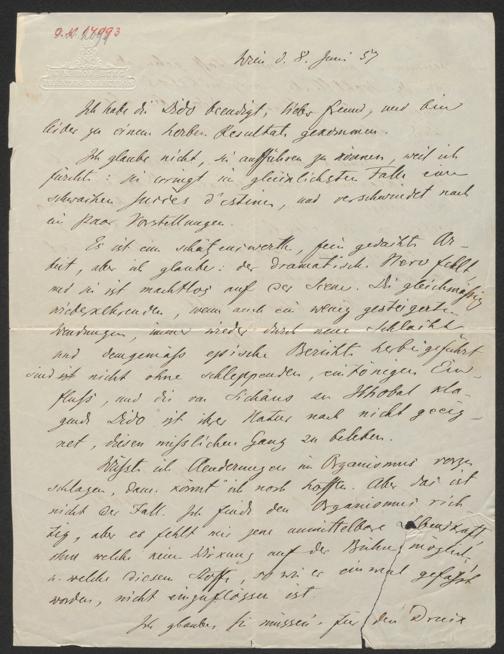 Wien d. 8. Juni 57
Ich habe die Dido beendigt, lieber Freund, und bin
leider zu einem herben Resultate gekommen.
Ich glaube nicht, sie aufführen zu können, weil ich
fürchte: sie erringt im glücklichsten Falle einen
schwachen succès d'estime, und verschwindet nach
ein paar Vorstellungen.
Es ist eine schätzenswerthe, fein gedachte Ar-
beit, aber ich glaube: der dramatische Nerv fehlt
und sie ist machtlos auf der Scene. Die gleichmäßig
wiederkehrenden, wenn auch ein wenig gesteigerten
Wendungen, immer wieder durch neue Schlacht
und demgemäß epische Berichte herbeigeführt
sind nicht ohne schleppenden, eintönigen Ein-
fluß, und die von Sichäus zu Hhobal kla-
gende Dido ist ihrer Natur nach nicht geeig-
net, diesen mißlichen Gang zu beleben.
Wüßte ich Aenderungen im Organismus vorzu
schlagen, dann könnt ich noch hoffen. Aber das ist
nicht der Fall. Ich finde den Organismus rich
tig, aber es fehlt mir jene unmittelbare Lebenskraft,
ohne welche keine Wirkung auf der Bühne möglich,
u. welche diesem Stoffe, so wie er einmal gefaßt
worden, nicht einzuflößen ist.
Ich glaube, Sie müssen für den Druck